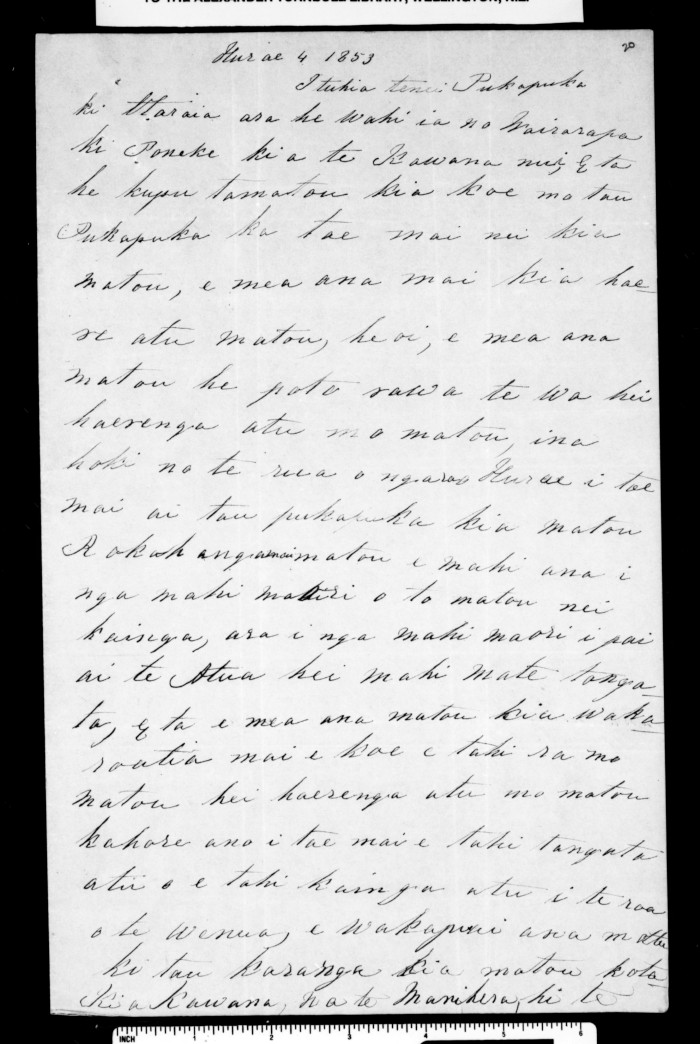 TO THE ALEXANDER TURNBULL LIBRARY, WELLINGTON, N.Z.
20
Hurae 4 1853
I tuhia tenei Pukapuka
ki Ttaraia ara he wahi ia no Wairarapa
ki Poneke kia te Kawana nui, E ta
he kupu tamatou kia koe mo tau
Pukapuka ka tae mai nei kia
matou, e mea ana mai kia hae-
re atu matou, heoi, e mea ana
matou he poto rawa te wa hei
haerenga atu mo matou, ina
hoki no te rua o ngaraa Hurae i tae
mai ai tau pukapuka kia matou
Rokohangamai matou e mahi ana i
nga mahi maori o to matou nei
kainga, ara i nga mahi maori i pai
ai te Atua hei mahi mate tanga
ta, E ta e mea ana matou kia waka-
roatia mai e koe e tahi ra mo
matou hei haerenga atu mo matou
kahore ano i tae mai e tahi tangata
atu o e tahi kainga atu i te roa
o te wenua, e wakapai ana matou
ki tau karanga kia matou kota-
kia Kawana, na te Manihera, hi te
INCH 1 2 3 4 5 6